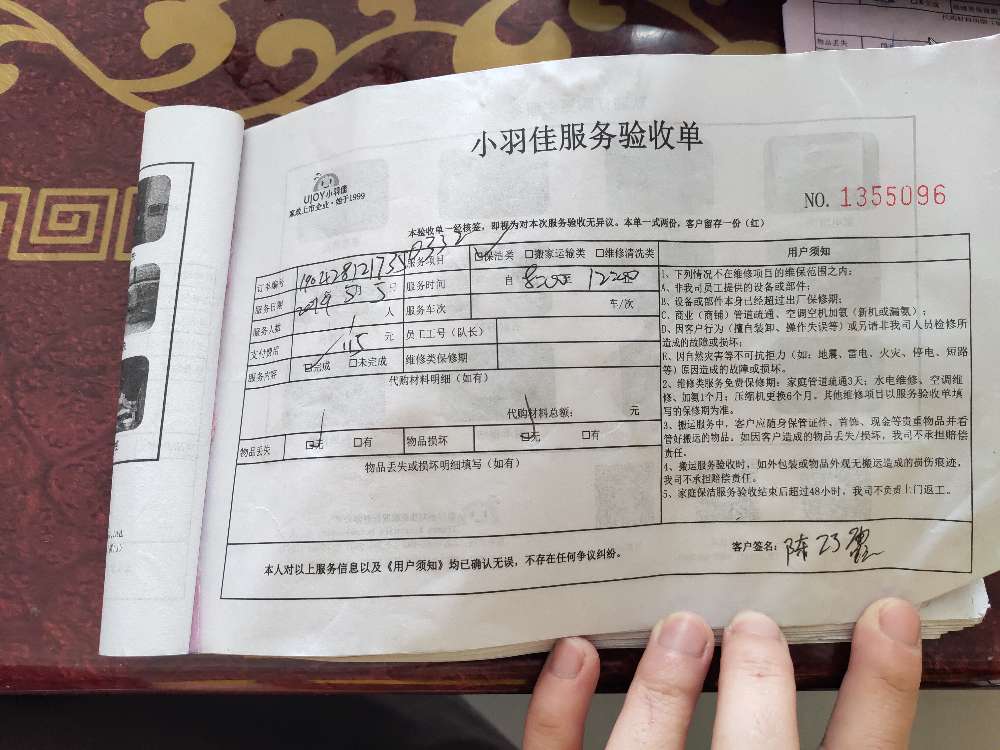 小羽佳服务验收单
UJOY小羽佳
家政上市企业·始于1999
NO. 1355096
本验收单一经核签，即视为对本次服务验收无异议。本单一式两份，客户留存一份（红）
订单编号 服务项目 ☑保洁类 □搬家运输类 □维修清洗类
服务日期 2019年5月5号 服务时间 自 8:00至 12:00
服务人数 1 人 服务车次 车/次
支付费用 115 元 员工工号（队长）
服务内容 ☑完成 □未完成 维修类保修期
代购材料明细（如有）
代购材料总额： 元
物品丢失 ☑无 □有 物品损坏 ☑无 □有
物品丢失或损坏明细填写（如有）
用户须知
1、下列情况不在维修项目的维保范围之内：
A、非我司员工提供的设备或部件；
B、设备或部件本身已经超过出厂保修期；
C、商业（商铺）管道疏通、空调空机加氨（新机或漏氨）；
D、因客户行为（擅自装卸、操作失误等）或另请非我司人员检修所
造成的故障或损坏；
E、因自然灾害等不可抗拒力（如：地震、雷电、火灾、停电、短路
等）原因造成的故障或损坏。
2、维修类服务免费保修期：家庭管道疏通3天；水电维修、空调维
修、加氨1个月；压缩机更换6个月。其他维修项目以服务验收单填
写的保修期为准。
3、搬运服务中，客户应随身保管证件、首饰、现金等贵重物品并看
管好搬运的物品。如因客户造成的物品丢失/损坏，我司不承担赔偿
责任。
4、搬运服务验收时，如外包装或物品外观无搬运造成的损伤痕迹，
我司不承担赔偿责任。
5、家庭保洁服务验收结束后超过48小时，我司不负责上门返工。
本人对以上服务信息以及《用户须知》均已确认无误，不存在任何争议纠纷。
客户签名：陈
物品丢失